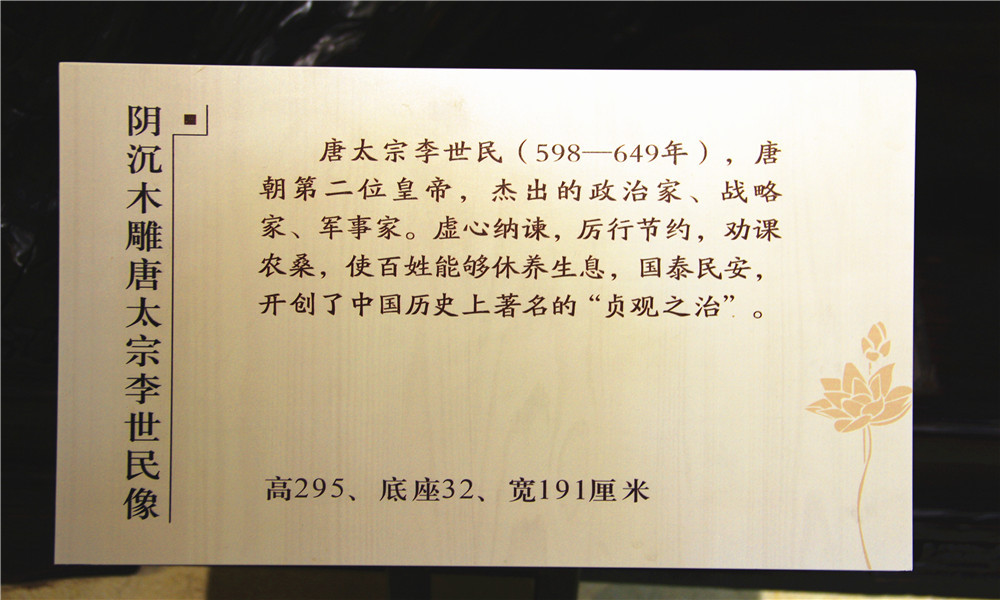 阴沉木雕唐太宗李世民像
唐太宗李世民（598—649年），唐
朝第二位皇帝，杰出的政治家、战略
家、军事家。虚心纳谏，厉行节约，劝课
农桑，使百姓能够休养生息，国泰民安，
开创了中国历史上著名的“贞观之治”。
高295、底座32、宽191厘米